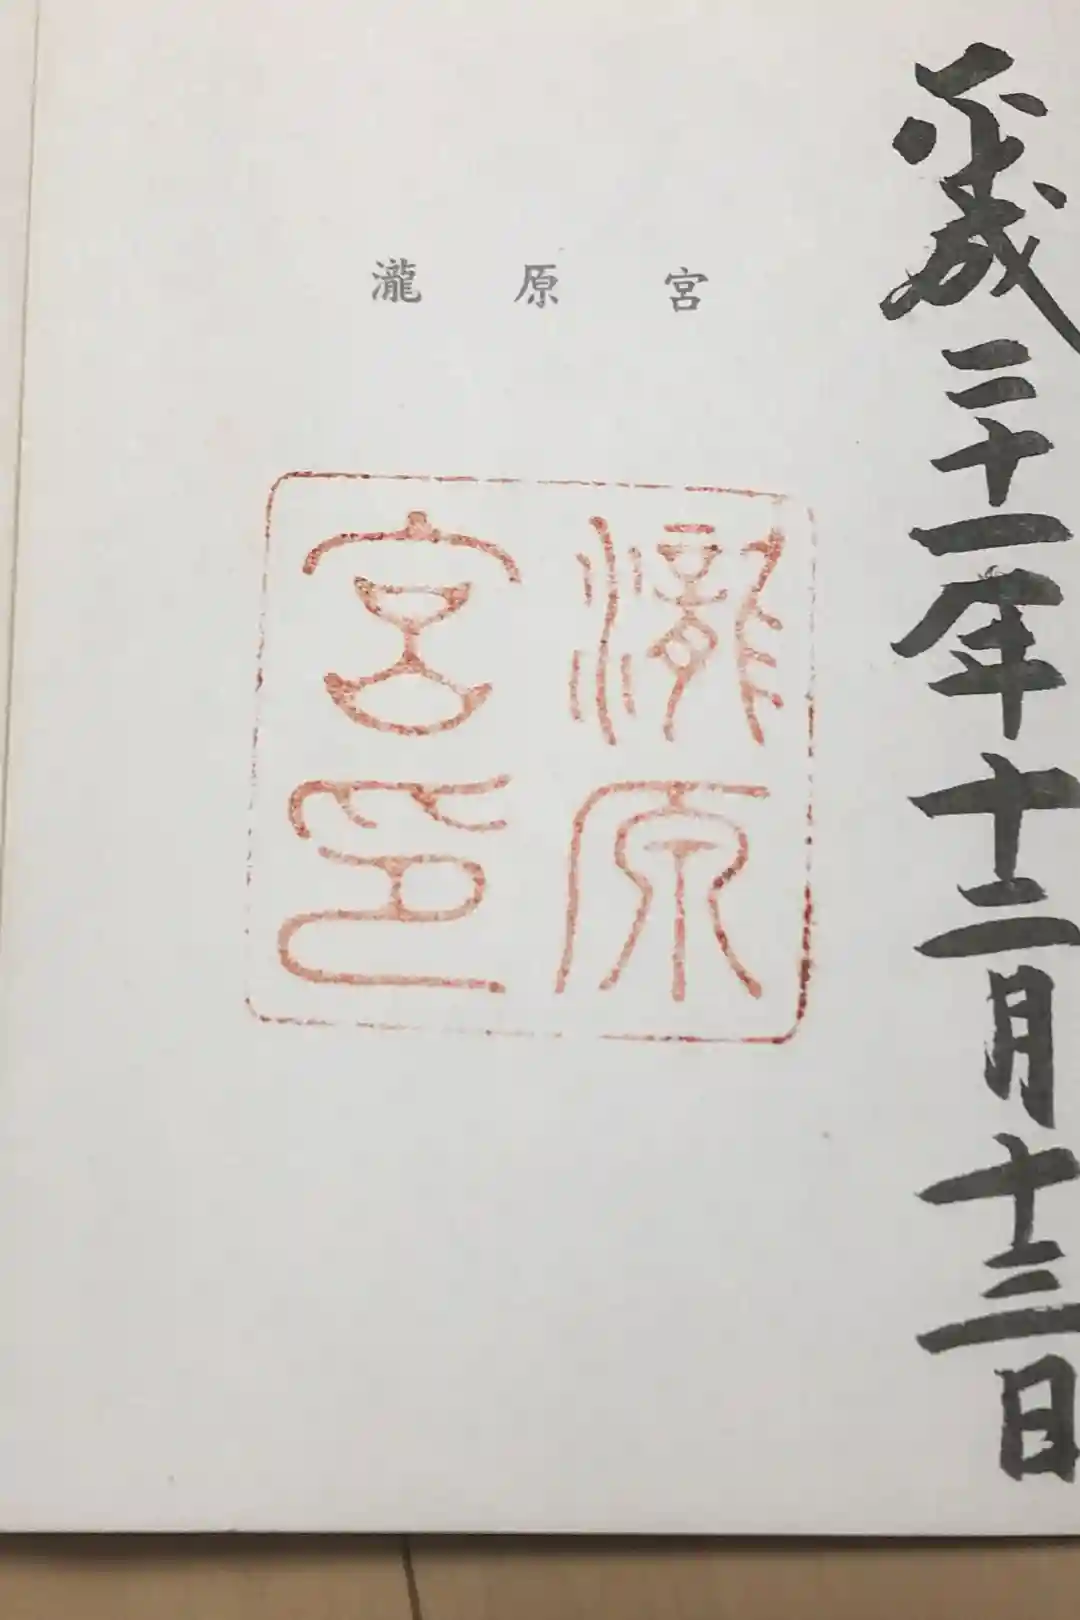 平成二十一年十二月十三日
瀧原宮
瀧原
宮印